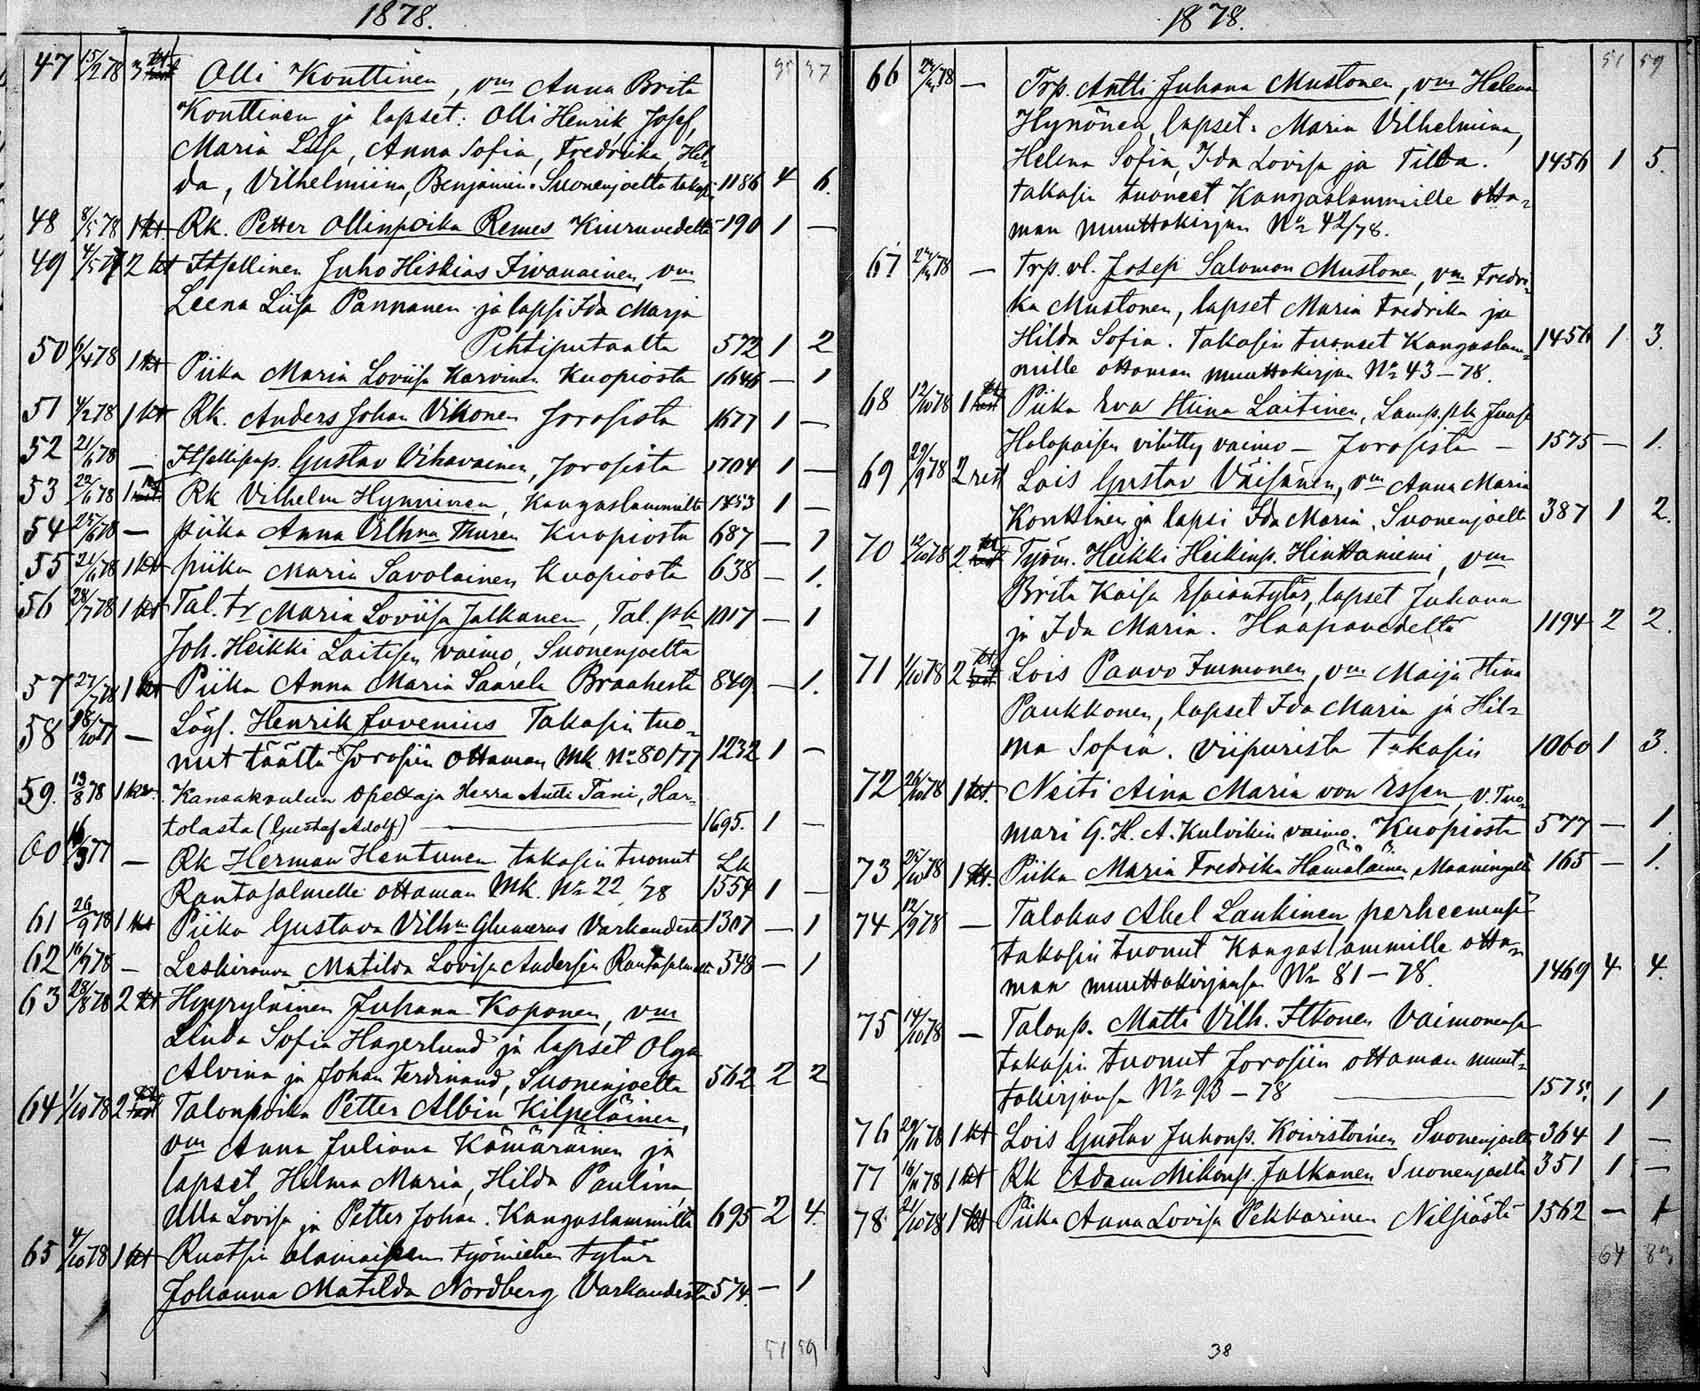 1878.
35 37
47 15/2 78 3 kt Olli Konttinen, vm Anna Brita
Konttinen ja lapset: Olli Henrik, Josef,
Maria Liisa, Anna Sofia, Fredrika, Hil-
da, Vilhelmiina, Benjamin. Suonenjoelta takas. 1186 4 6.
48 8/5 78 1 kt Rk. Petter Ollinpoika Remes Kiuruvedeltä 190 1 —
49 4/5 77 2 kt Itsellinen Juho Hiskias Tivanainen, vm
Leena Liisa Pannanen ja lapsi Ida Marja
Pihtiputaalta 572 1 2
50 6/4 78 1 kt Piika Maria Loviisa Karvinen Kuopiosta 1646 — 1
51 4/2 78 1 kt Rk. Anders Johan Vihonen Joroisista 1677 1 —
52 21/6 78 — Itsellisp. Gustav Vihavainen, Joroisista 1704 1 —
53 22/6 78 1 Rk Vilhelm Hynninen, Kangaslammilta 1453 1 —
54 25/6 78 — piika Anna Vilhna Thuren Kuopiosta 687 — 1
55 21/6 78 1 kt piika Maria Savolainen Kuopiosta 638 — 1.
56 28/7 78 1 kt Tal. tr Maria Loviisa Jalkanen, Tal. pk 1017 — 1
Joh. Heikki Laitisen vaimo, Suonenjoelta
57 27/7 78 1 kt Piika Anna Maria Saarela Braahesta 849 — 1.
58 18/10 77 — Lögf. Henrik Juvenius Takasin tuo-
nut täältä Joroisiin ottaman Mk. No 80/77 1232 1 —
59. 13/8 78 1 Kansakoulun opettaja Herra Antti Tani, Har-
tolasta (Gustaf Adolf) — 1695. 1 —
60 16/3 77 — Rk Herman Hentunen takasin tuonut Lk
Rantasalmelle ottaman Mk. No 22 /78 1554 1 —
61 26/9 78 1 kt Piika Gustava Vilhna Glumerus Varkaudesta 1307 — 1
62 16/9 78 — Leskirouva Matilda Lovisa Andersin Rantasalmelta 548 — 1
63 28/8 78 2 kt Hyyryläinen Juhana Koponen, vm
Linda Sofia Hagerlund ja lapset Olga
Alvina ja Johan Ferdinand, Suonenjoelta 562 2 2
64 1/10 78 2 kt Talonpoika Petter Albin Kilpeläinen,
vm Anna Juliana Kämäräinen ja
lapset Hilma Maria, Hilda Paulina
Ulla Lovisa ja Petter Johan. Kangaslammilta 695 2 4.
65 4/10 78 1 kt Ruotsin alamaisen työmiehen tytär
Johanna Matilda Nordberg Varkaudesta 574. — 1
51 59
1878.
51 59
66 78 — Trp. Antti Juhana Mustonen, vm Helena
Hynönen, lapset: Maria Vilhelmina,
Helena Sofia, Ida Lovisa ja Tilda. 1456 1 5.
takasin tuoneet Kangaslammille otta-
man muuttokirjan No 42/78.
67 78 — Trp. vl. Josep Salomon Mustone, vm Fredri-
ka Mustonen, lapset Maria Fredrika ja
Hilda Sofia. Takasin tuonet Kangaslam- 1456 1 3.
mille ottaman muuttokirjan No 43-78.
68 12/10 78 1 kt Piika Eva Stiina Laitinen, Lamp. pk Juuse
Holopaisen vihitty vaimo — Joroisista — 1575 — 1.
69 29/9 78 2 rist Lois Gustav Väisänen, vm Anna Maria
Konttinen ja lapsi Ida Maria, Suonenjoelta 387 1 2.
70 12/10 78 2 kt Työm. Heikki Heikinp. Hinttaniemi, vm
Brita Kaisa Esaiantytär, lapset Juhana
ja Ida Maria. Haapavedeltä 1194 2 2.
71 1/10 78 2 kt Lois Paavo Immonen, vm Maija Stina
Paukkonen, lapset Ida Maria ja Hil-
ma Sofia. Viipurista takasin 1060 1 3.
72 26/10 78 1 kt. Neiti Aina Maria von Essen, v. Tuo-
mari G. H. A. Kulvikin vaimo. Kuopiosta 577 — 1
73 25/10 78 1 kt. Piika Maria Fredrika Hämäläinen Maaningalta 165 — 1.
74 12/9 78 — Talokas Abel Laukinen perheenensä
takasin tuonut Kangaslammille otta-
man muuttokirjansa No 81-78. 1469 4 4.
75 14/10 78 — Talonp. Matti Vilh. Itkonen Vaimonensa
takasin tuonut Joroisiin ottaman muut-
tokirjansa No 93-78 — 1575. 1 1
76 29/11 78 1 kt Lois Gustav Juhonp. Koivistoinen Suonenjoelta 364 1 —
77 16/11 78 1 kt Rk Adam Mikonp. Jalkanen Suonenjoelta 351 1 —
78 21/10 78 1 kt Piika Anna Lovisa Pekkarinen Nilsiästä 1562 — 1
64 83
38